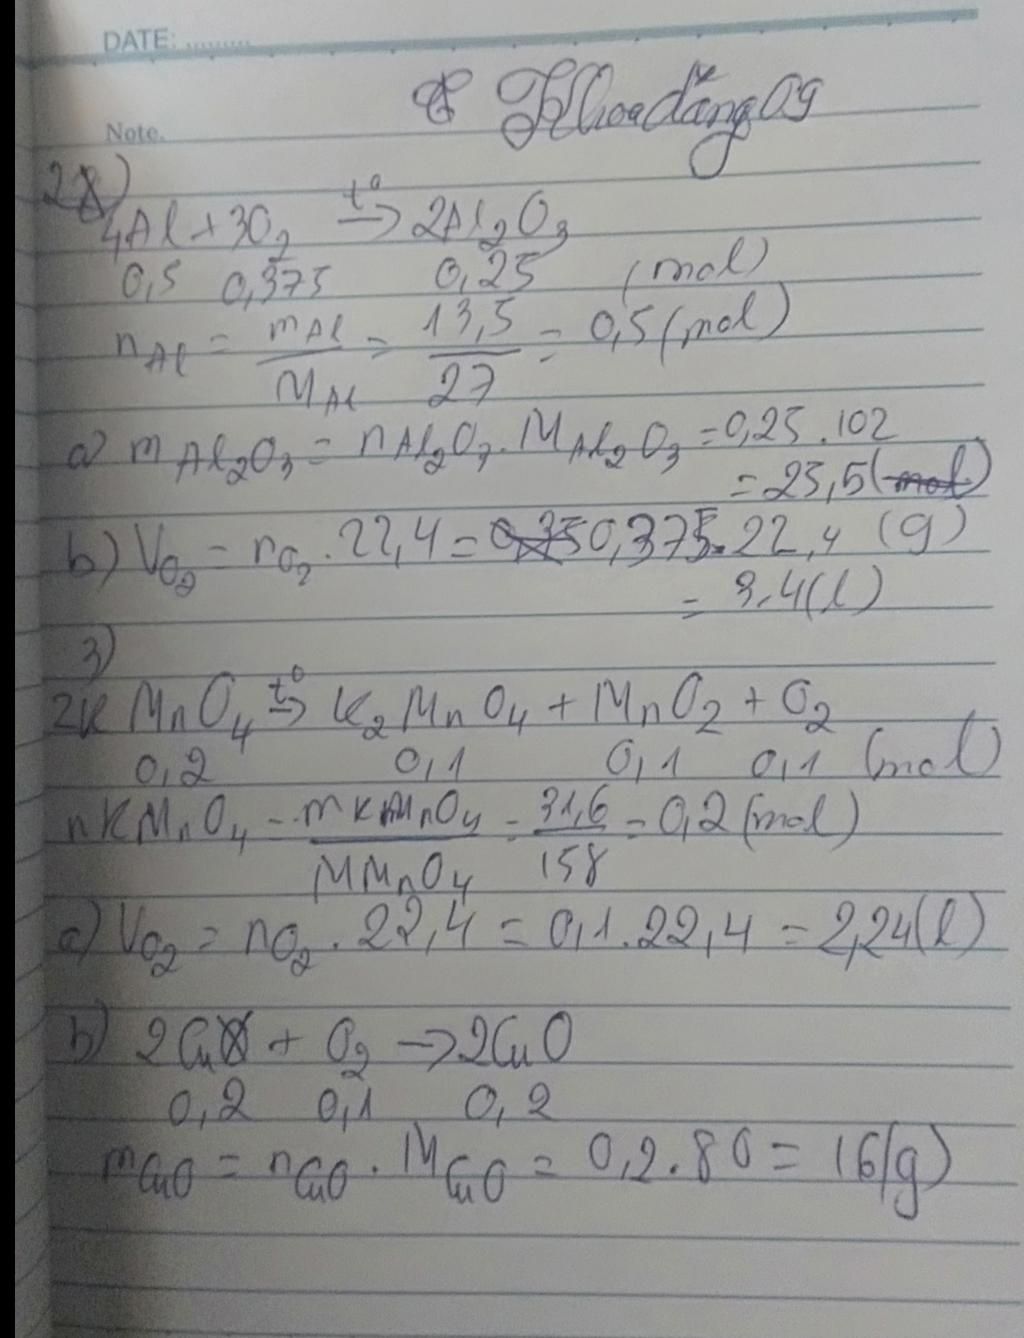 DATE: .........
KhoadăngOg
Note.
2)
4Al + 3O₂ t⁰→ 2Al₂O₃
0,5 0,375 0,25 (mol)
nAl = mAl/MAl = 13,5/27 = 0,5 (mol)
a) mAl₂O₃ = nAl₂O₃ . MAl₂O₃ = 0,25 . 102
= 25,5 (g)
b) VO₂ = nO₂ . 22,4 = 0,375 . 22,4
= 8,4 (l)
3)
2KMnO₄ t⁰→ K₂MnO₄ + MnO₂ + O₂
0,2 0,1 0,1 0,1 (mol)
nKMnO₄ = mKMnO₄/MMnO₄ = 31,6/158 = 0,2 (mol)
a) VO₂ = nO₂ . 22,4 = 0,1 . 22,4 = 2,24 (l)
b) 2Cu + O₂ → 2CuO
0,2 0,1 0,2
mCuO = nCuO . MCuO = 0,2 . 80 = 16 (g)